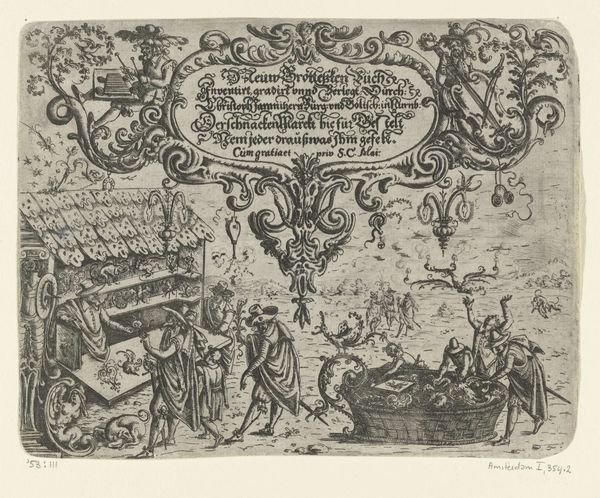 D Neuw Grotteßken Buch
Inventirt, gradirt vnnd Verlegt Durch:
Christoph Jamnitzern Burg: vnd Goltsch: in Nurnb.
Der schnacken Marckt hie fur
Nem jeder drauß was Ihm gefell.
Cum gratia et priv S.C. Mai:
'53:111
Amsterdam I, 354.2